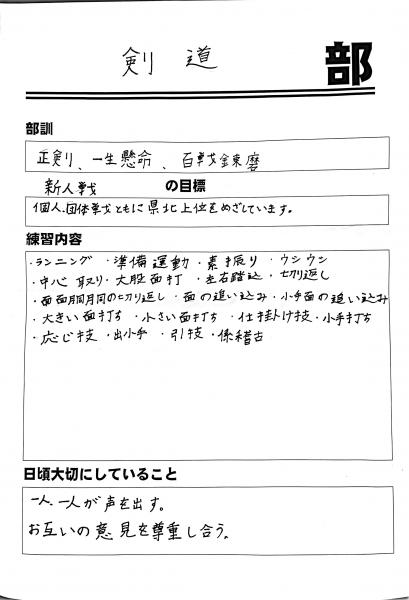 剣道 部
部訓
正剣、一生懸命、百戦錬磨
新人戦 の目標
個人、団体戦ともに県北上位をめざしています。
練習内容
・ランニング ・準備運動・素振り・ウシウシ
・中心取り・大股面打・左右踏込・切り返し
・面面胴胴の切り返し・面の追い込み・小手面の追い込み
・大きい面打ち ・小さい面打ち・仕掛け技・小手打ち
・応じ技・出小手 ・引技・係稽古
日頃大切にしていること
一人、一人が声を出す。
お互いの意見を尊重し合う。